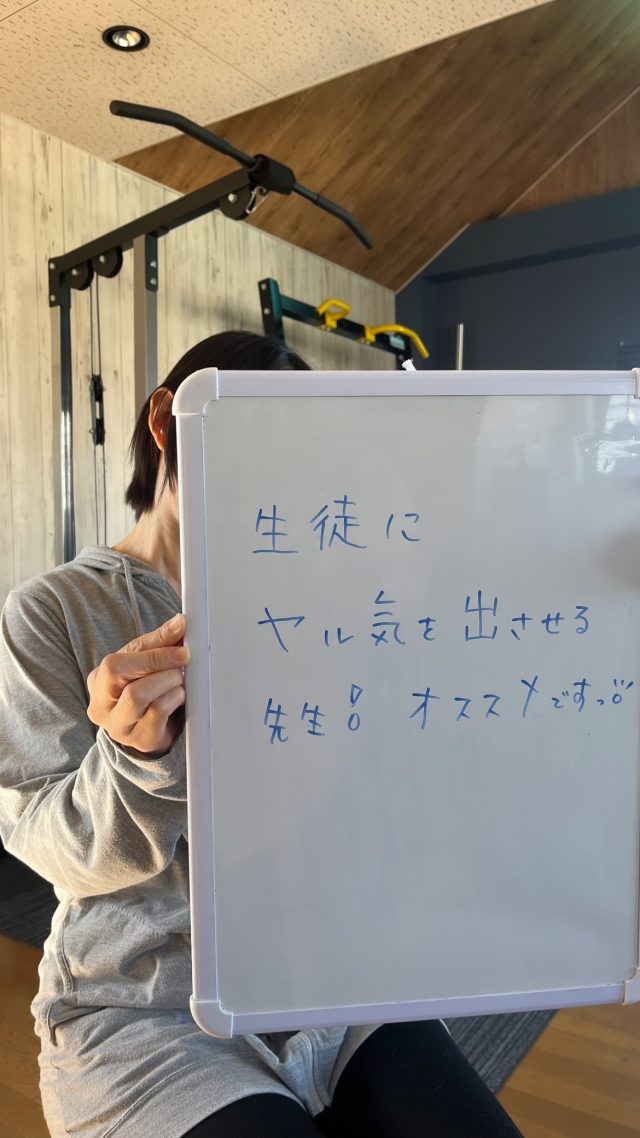 生徒に
ヤル気を出させる
先生!! オススメですっ!!